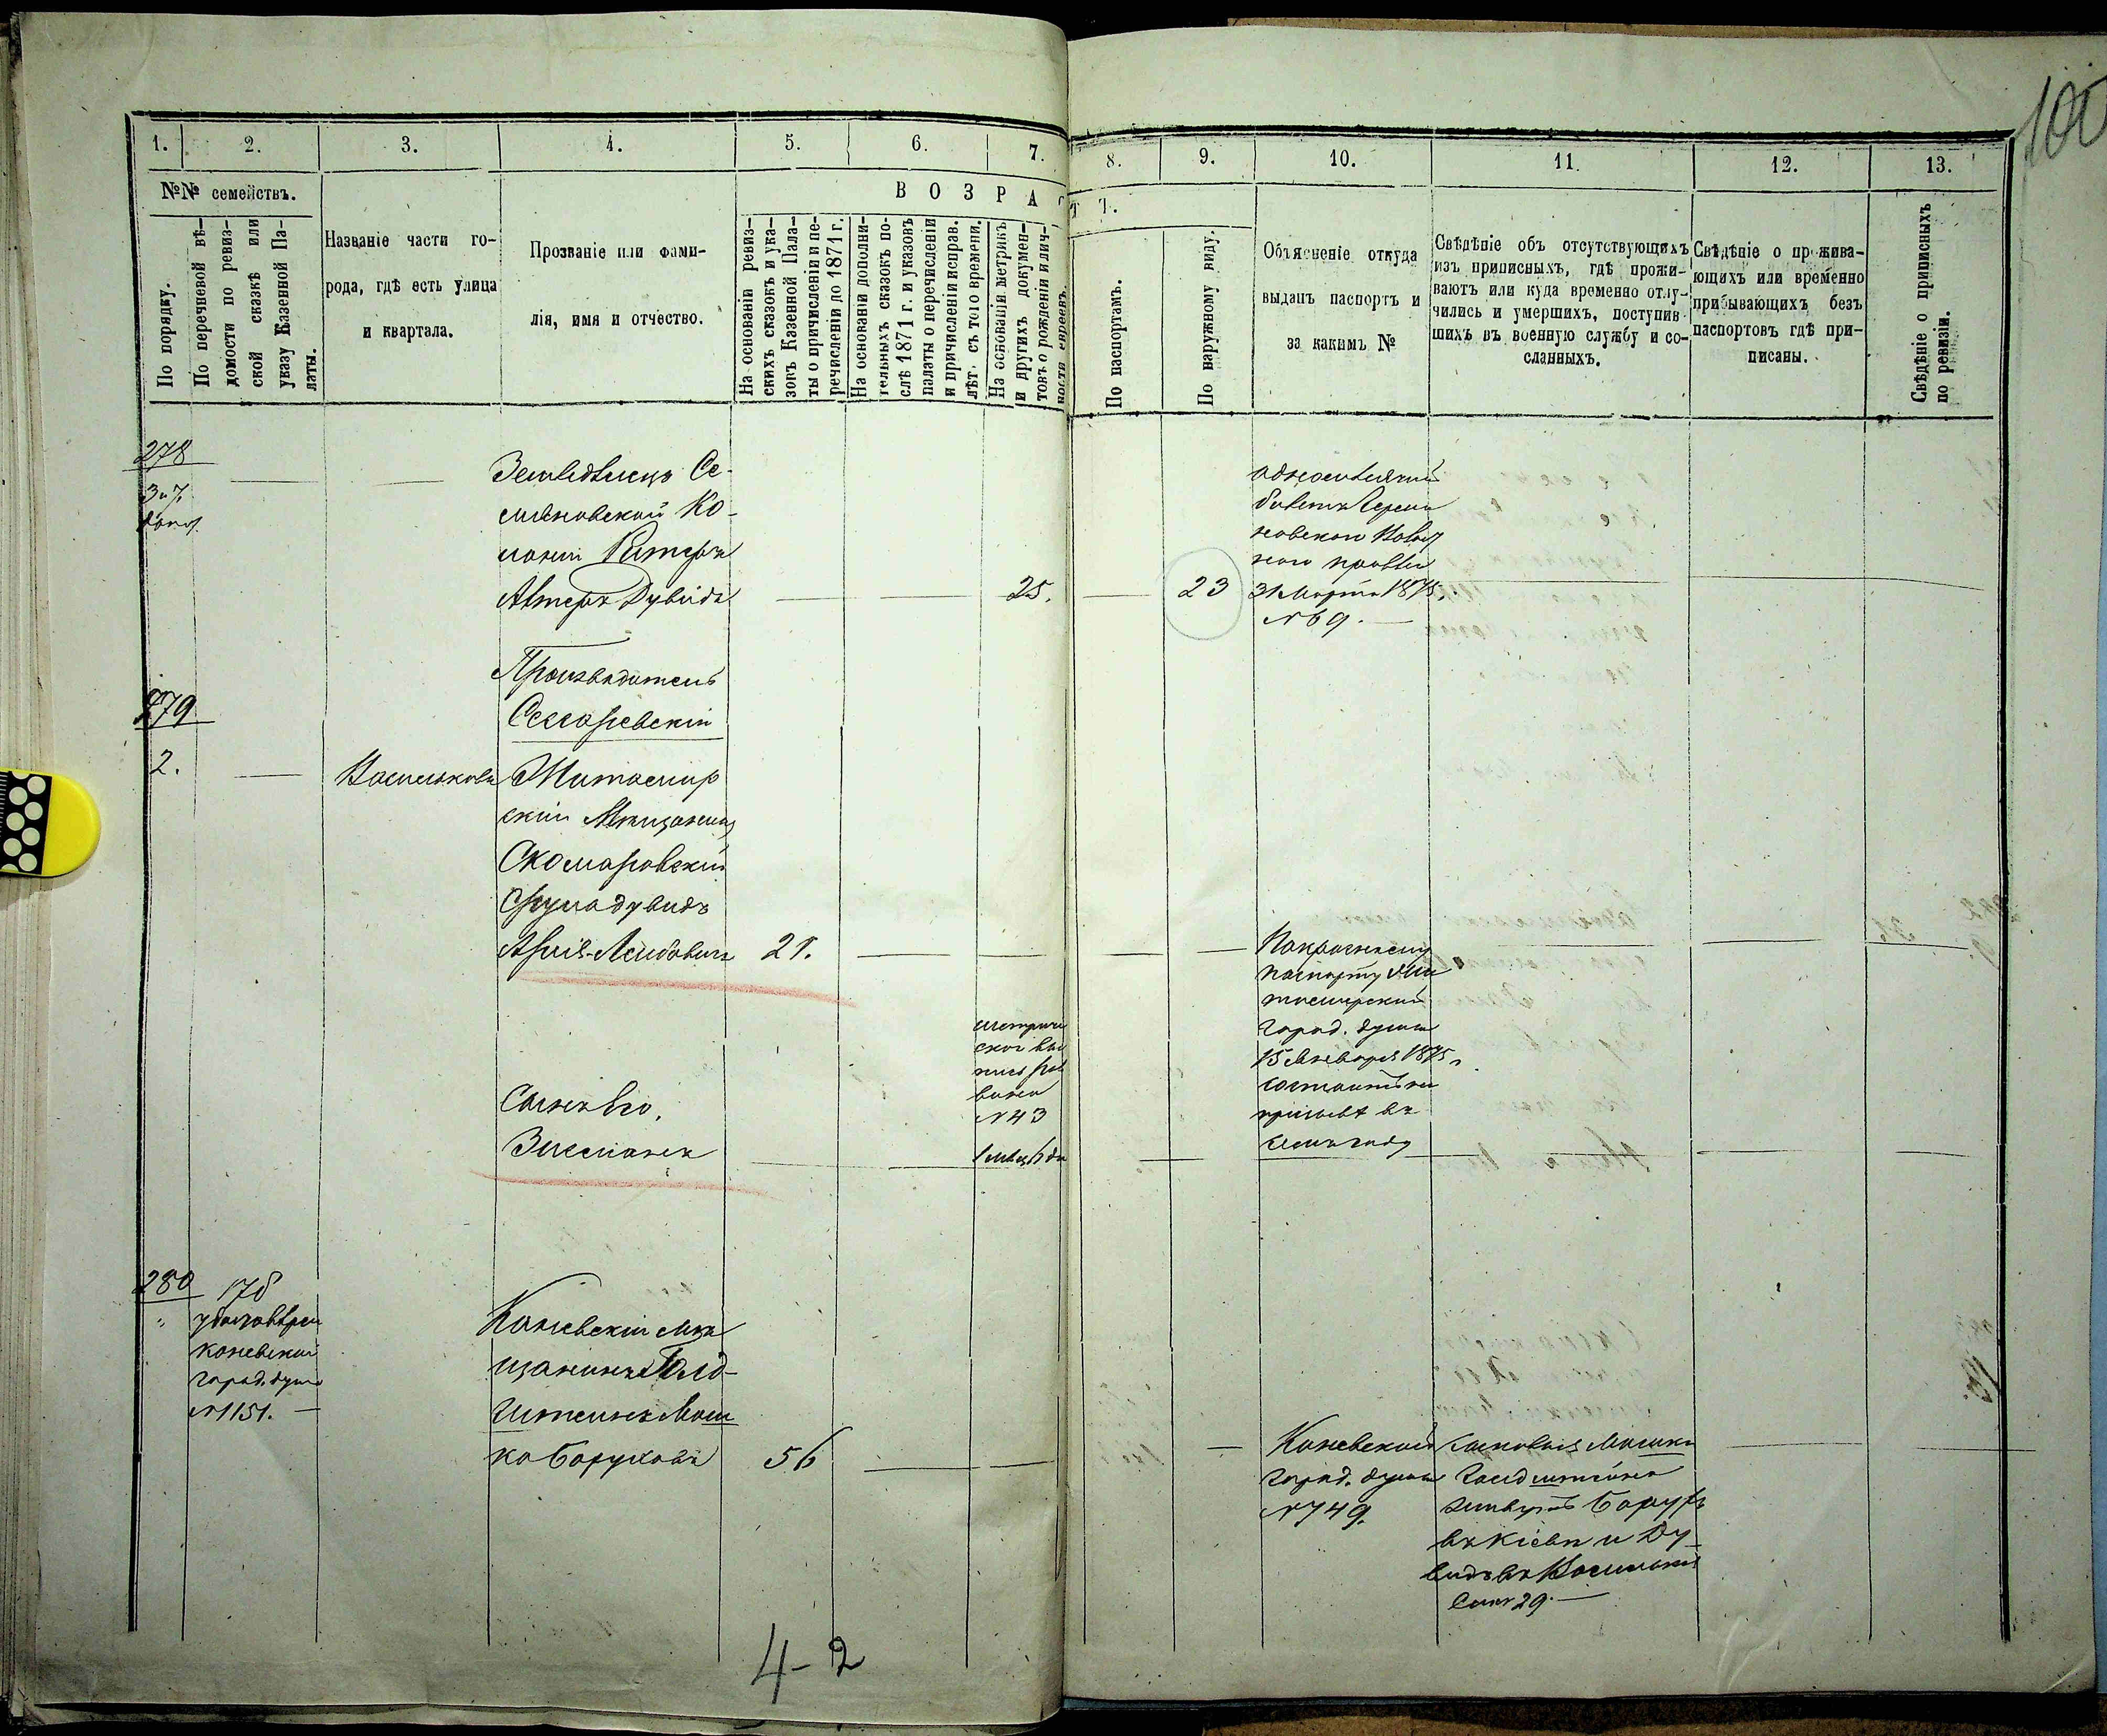 100
1. 2. 3. 4. 5. 6. 7. 8. 9. 10. 11. 12. 13.
№№ семействъ.
По порядку.
По перечневой вѣ-
домости по ревиз-
ской сказкѣ или
указу Казенной Па-
латы.
Названіе части го-
рода, гдѣ есть улица
и квартала.
Прозваніе или фами-
лія, имя и отчество.
ВОЗРАСТЪ.
На основаніи ревиз-
скихъ сказокъ и ука-
зокъ Казенной Пала-
ты о причисленіи и пе-
речисленіи до 1871 г.
На основаніи дополни-
тельныхъ сказокъ по-
слѣ 1871 г. и указовъ
палаты о перечисленіи
и причисленіи исправ.
лѣт. съ того времени.
На основаніи метрикъ
и другихъ докумен-
товъ о рожденіи и лич-
ности евреевъ.
По паспортамъ.
По наружному виду.
Объясненіе откуда
выданъ паспортъ и
за какимъ №
Свѣдѣніе объ отсутствующихъ
изъ приписныхъ, гдѣ прожи-
ваютъ или куда временно отлу-
чились и умершихъ, поступив-
шихъ въ военную службу и со-
сланныхъ.
Свѣдѣніе о прожива-
ющихъ или временно
прибывающихъ безъ
паспортовъ гдѣ при-
писаны.
Свѣдѣніе о приписныхъ
по ревизіи.
278
Земледѣлецъ Се-
мѣновской Ко-
лоніи
Дувида 25. 23
31 Марта 1875
№ 69.
Производитель
279
2. Васильковъ Житомир
скій Мѣщанинъ
Скомаровскій
Сруладувидъ
Арія-Лейбовичъ 21.
паспорту Жи
томирской
город. думы
15 Января 1875 г.
№ 43
Сынъ Его,
Зисманъ
призывѣ въ
280 178
Каневской
город. думы
№ 1151.
Каневскій Мѣ
щанинъ Голд-
штейнъ Мош
ко Боруховъ 56
Каневской
город. думы
№ 749.
сыновья Мошки
Голдштейна
живутъ Борухъ
въ Кіевѣ и Ду-
видъ въ Василькѣ
29.
4-2